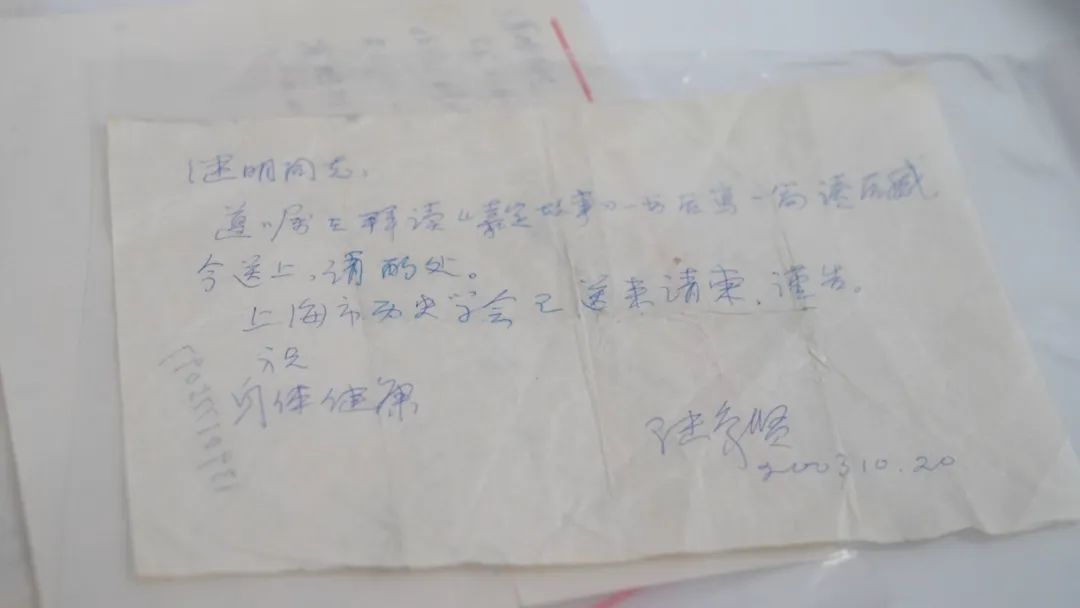 继明同志,
遵嘱在拜读《嘉定故事》一书后写一篇读后感,
今送上,请酌处。
上海市历史学会已送来请柬,谨告。
祝
身体健康
陆象贤
2003.10.20